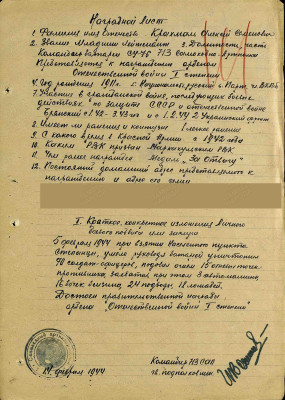 Наградной лист.
1. Фамилия имя отчество Крохмаль Алексей Семенович
2. Звание Младший лейтенант 3. Должность, часть
Командир батареи СУ-76 713 Самоходн. Артполка
Представляется к награждению орденом
Отечественной войны I степени
4. Год рождения 1911г. 5. Национальн. русский 6. Парт. чл ВКП(б)
7. Участие в гражданской войне, последующих боевых
действиях по защите СССР и отечественной войне
Брянский с 1.42 - 3.43 г. и с 1.2.44 2 Украинский фронт
8. Имеет ли ранения и контузии 1 легкое ранение
9. С какого время в Красной Армии с 1942 года
10. Каким РВК призван РВК
11. Чем ранее награжден Медаль "За Отвагу"
12. Постоянный домашний адрес представляемого к
награждению и адрес его семьи
I. Краткое, конкретное изложение личного
боевого подвига или заслуг
5 февраля 1944 при взятии населенного пункта
умело руководя батареей уничтожил
90 солдат-офицеров, подавил огонь 15 огнев. точек
противника захватил при этом 3 автомашины
16 бочек бензина, 24 подвод, 18 лошадей.
Достоин правительственной награды
ордена "Отечественной войны I степени"
Командир 713 САП
гв. подполковник
14 февраля 1944